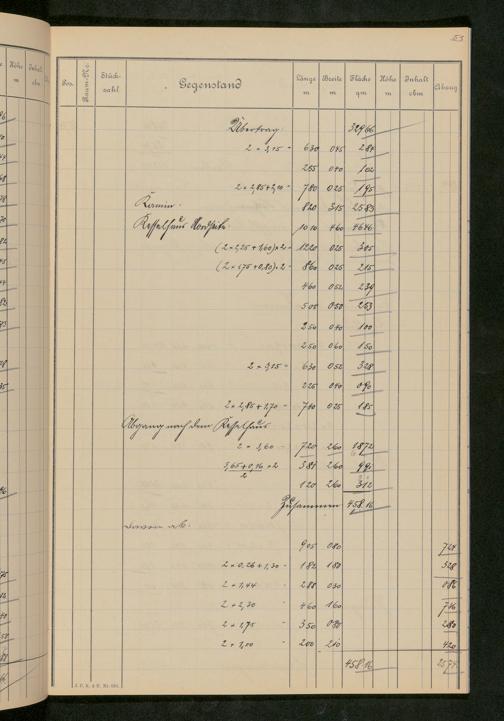 53
Pos. Raum-Nr. Stück-zahl Gegenstand Länge m Breite m Fläche qm Höhe m Inhalt cbm Abzug
Übertrag: 329 66
2 × 3,15 = 6 30 0 45 2 84
2 55 0 40 1 02
2 × 2,85 + 2,10 = 7 80 0 25 1 95
Kamin. 8 20 3 15 25 83
Kesselhaus Nordseite. 10 10 4 60 46 46
(2 × 2,25 + 1,60) × 2 = 12 20 0 25 3 05
(2 × 1,75 + 0,80) × 2 = 8 60 0 25 2 15
4 60 0 52 2 39
5 05 0 50 2 53
2 50 0 40 1 00
2 50 0 60 1 50
2 × 3,15 = 6 30 0 52 3 28
2 25 0 40 0 90
2 × 2,85 + 1,70 = 7 40 0 25 1 85
Abgang nach dem Kesselhaus
2 × 3,60 = 7 20 2 60 18 72
3,65 + 0,16 × 2
2
3 81 2 60 9 91
1 20 2 60 3 12
Zusammen 458 16
davon ab:
9 05 0 80 7 24
2 × 0,26 + 1,30 = 1 82 1 80 3 28
2 × 1,44 = 2 88 0 30 0 86
2 × 2,30 = 4 60 1 60 7 36
2 × 1,75 = 3 50 0 80 2 80
2 × 1,00 = 2 00 2 10 4 20
458 16 25 74